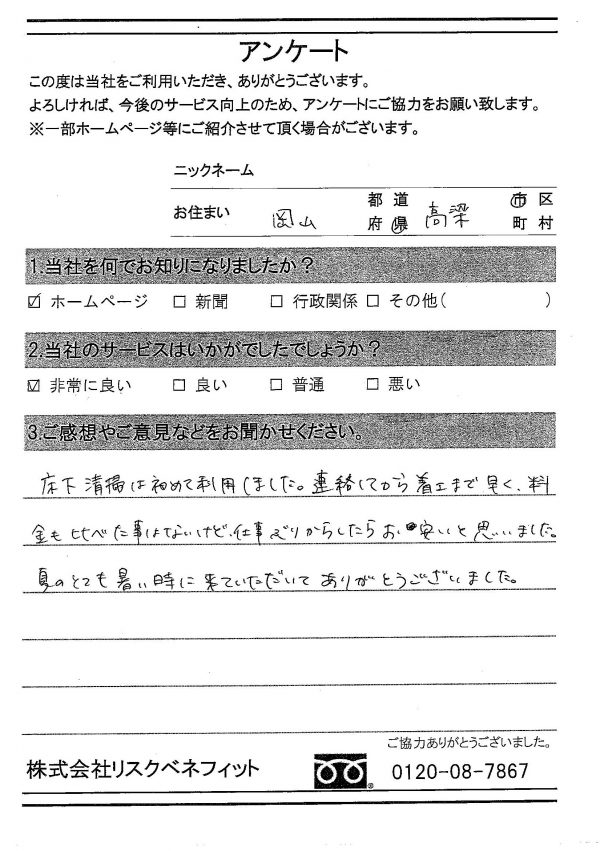 アンケート
この度は当社をご利用いただき、ありがとうございます。
よろしければ、今後のサービス向上のため、アンケートにご協力をお願い致します。
※一部ホームページ等にご紹介させて頂く場合がございます。
ニックネーム
お住まい 岡山 都道府県 高梁 市区町村
1.当社を何でお知りになりましたか?
☑ ホームページ □ 新聞 □ 行政関係 □ その他( )
2.当社のサービスはいかがでしたでしょうか?
☑ 非常に良い □ 良い □ 普通 □ 悪い
3.ご感想やご意見などをお聞かせください。
床下清掃は初めて利用しました。連絡してから着工まで早く、料
金も比べた事はないけど、仕事ぶりからしたらお安いと思いました。
夏のとても暑い時に来ていただいてありがとうございました。
ご協力ありがとうございました。
株式会社リスクベネフィット 0120-08-7867